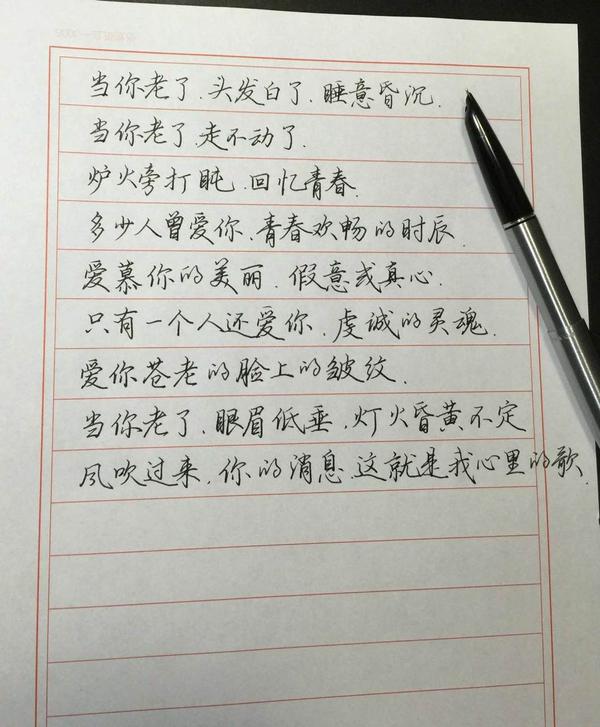 当你老了.头发白了.睡意昏沉.
当你老了.走不动了.
炉火旁打盹.回忆青春.
多少人曾爱你.青春欢畅的时辰.
爱慕你的美丽.假意或真心.
只有一个人还爱你.虔诚的灵魂.
爱你苍老的脸上的皱纹.
当你老了.眼眉低垂.灯火昏黄不定
风吹过来.你的消息.这就是我心里的歌.